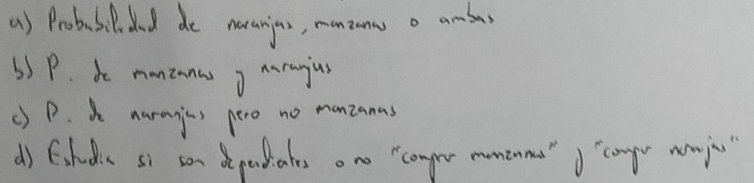 a) Probabilidad de naranjas, manzanas o ambas
b) P. de manzanas y naranjas
c) P. de naranjas pero no manzanas
d) Estudia si son dependientes o no "compro manzanas" y "compro naranjas"